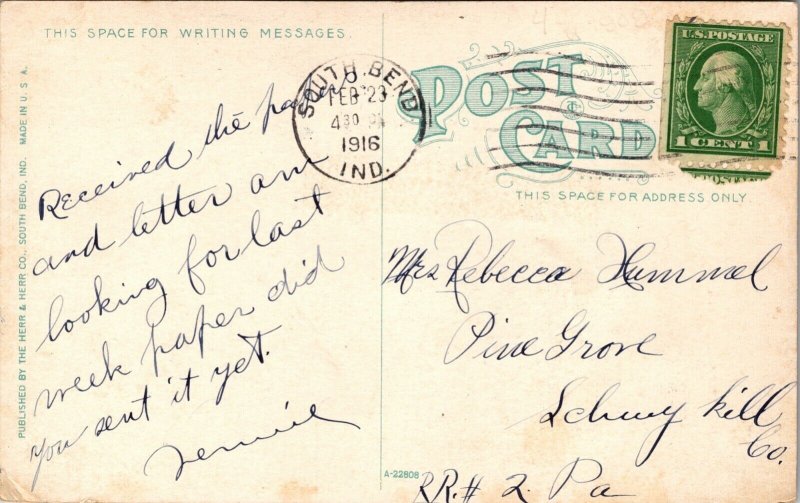 THIS SPACE FOR WRITING MESSAGES.
POST CARD
THIS SPACE FOR ADDRESS ONLY.
SOUTH BEND,
FEB 23
4 30 PM
1916
IND.
U.S. POSTAGE
1 CENT 1
PUBLISHED BY THE HERR & HERR CO., SOUTH BEND, IND. MADE IN U. S. A.
Received the paper
and letter am
looking for last
week paper did
you sent it yet.
Mrs Rebecca Hummel
Pine Grove
Schuylkill
Co.
RR.# 2. Pa
A-22808